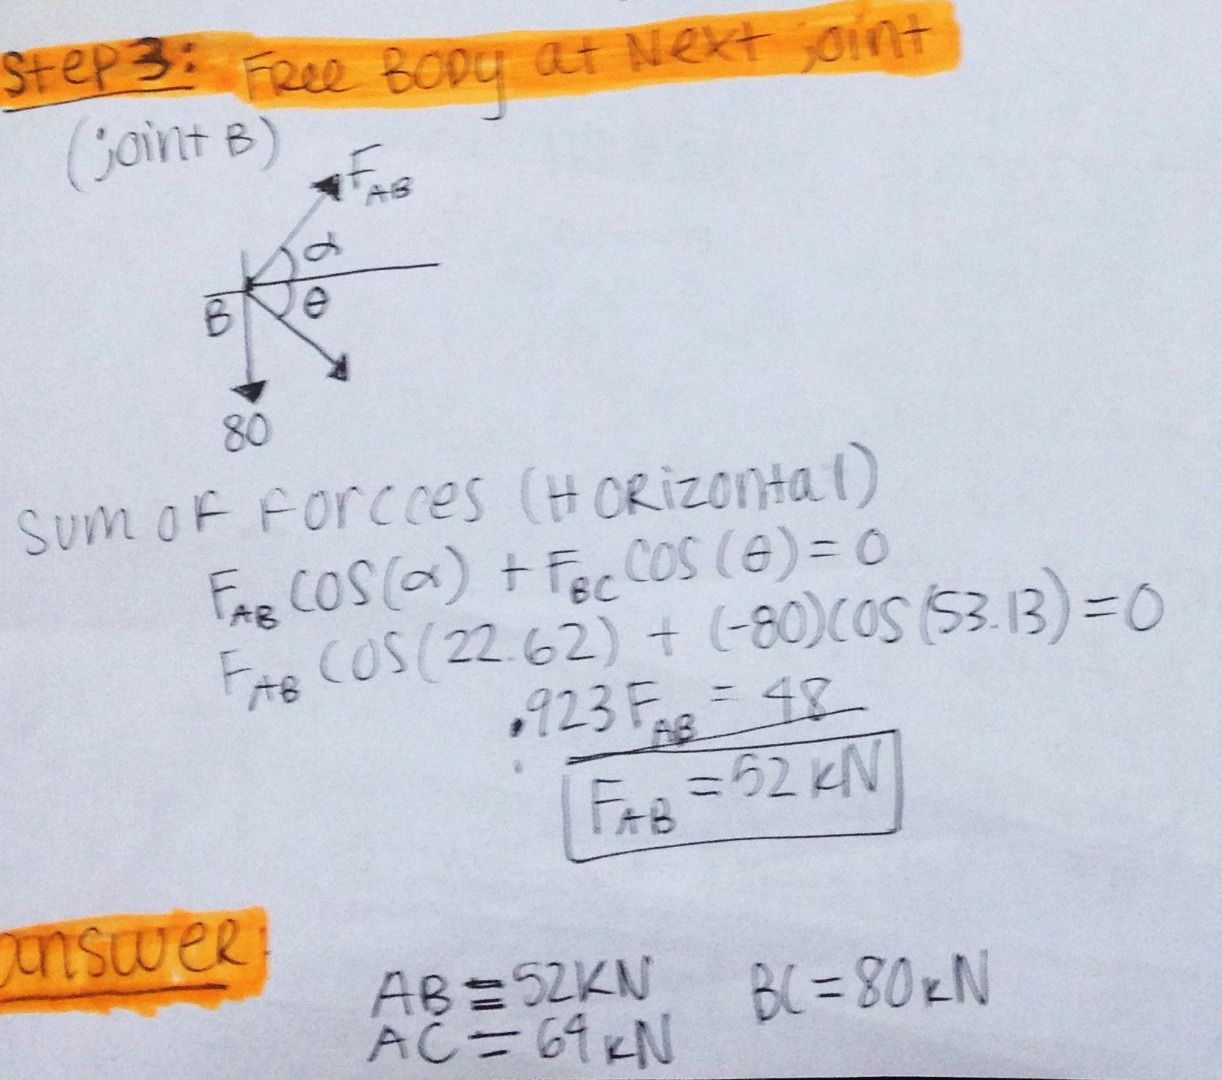 Step 3: Free Body at Next joint
(joint B)
F_AB
α
B θ
80
Sum of Forcces (Horizontal)
F_AB cos(α) + F_BC cos(θ) = 0
F_AB cos(22.62) + (-80)cos(53.13) = 0
.923 F_AB = 48
F_AB = 52 kN
answer:
AB = 52KN BC = 80kN
AC = 64kN